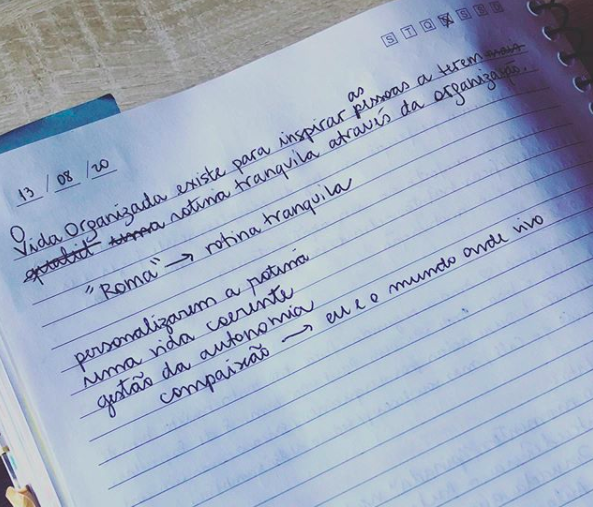 S T Q Q S S D
13 / 08 / 20
O
as
Vida Organizada existe para inspirar pessoas a terem mais
qualid uma rotina tranquila através da organização.
"Roma" → rotina tranquila
personalizarem a rotina
uma vida coerente
gestão da autonomia
compaixão → eu e o mundo onde vivo